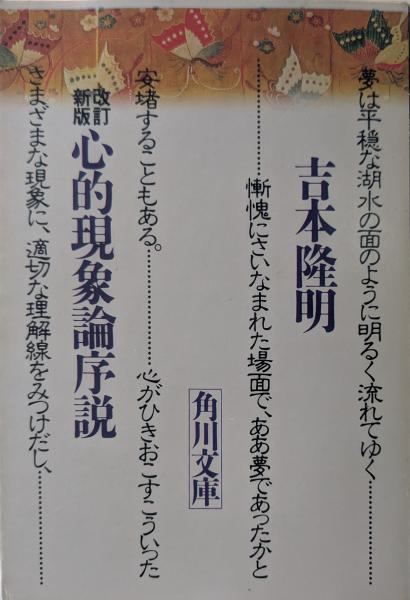 夢は平穏な湖水の面のように明るく流れてゆく…………
吉本隆明
…………慚愧にさいなまれた場面で、ああ夢であったかと
角川文庫
安堵することもある。…………心がひきおこすこういった
改訂
新版
心的現象論序説
さまざまな現象に、適切な理解線をみつけだし、…………